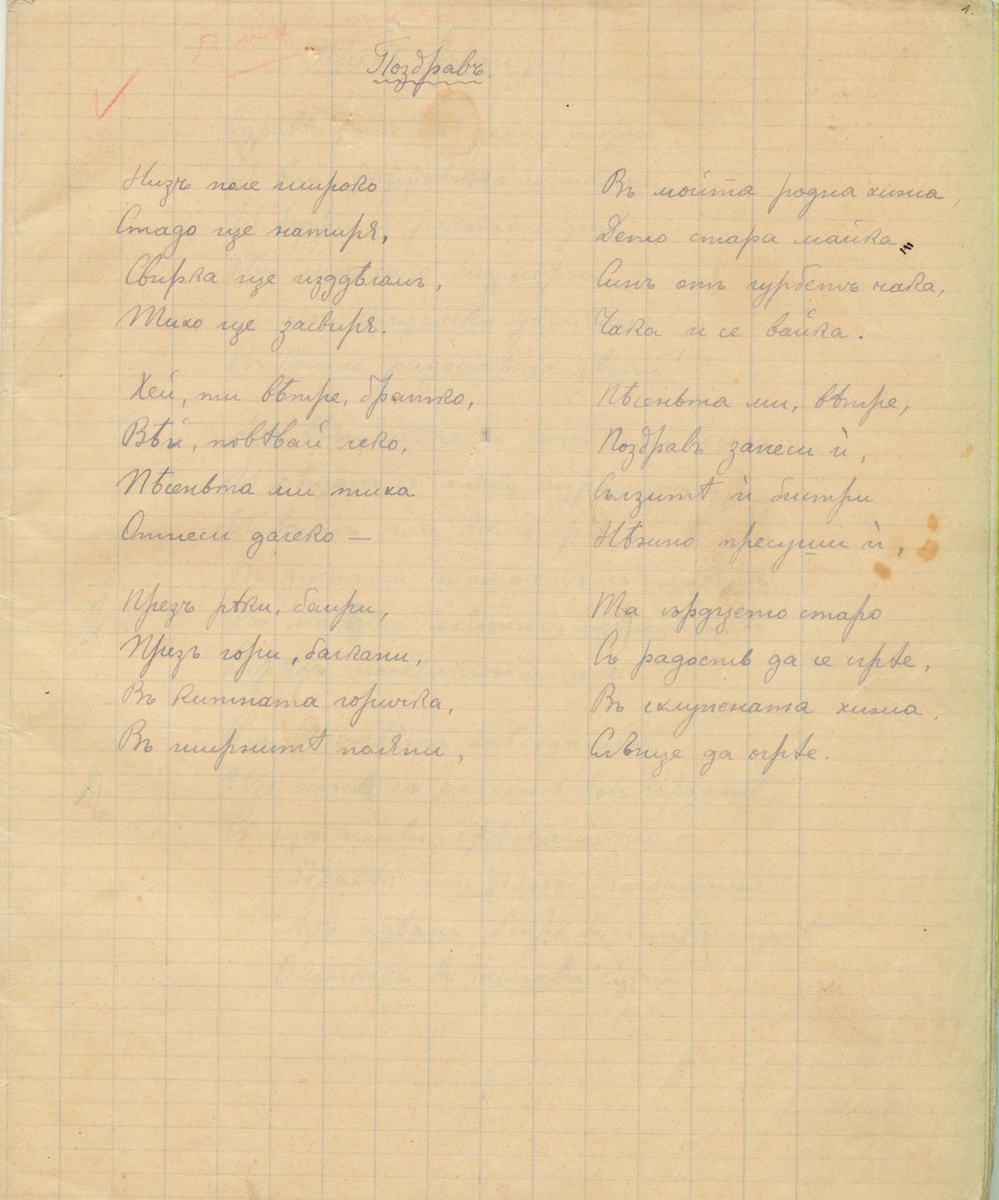 1.
Поздравъ.
Низъ поле широко
Стадо ще натиря,
Свирка ще издѣлам,
Тихо ще засвиря.
Хей, ти вѣтре, братко,
Вѣй, повѣвай леко,
Пѣсеньта ми тиха
Отнеси далеко —
Презъ рѣки, баири,
Презъ гори, балкани,
Въ китната горичка,
Въ ширнитѣ поляни,
Въ мойта родна хижа,
Дето стара майка
Синъ отъ гурбетъ чака,
Чака и се вайка.
Пѣсеньта ми, вѣтре,
Поздравъ занеси ѝ,
Сълзитѣ ѝ бистри
Нѣжно пресуши ѝ,
Та сърдцето старо
Съ радость да се сгрѣе,
Въ схлупената хижа
Слънце да огрѣе.